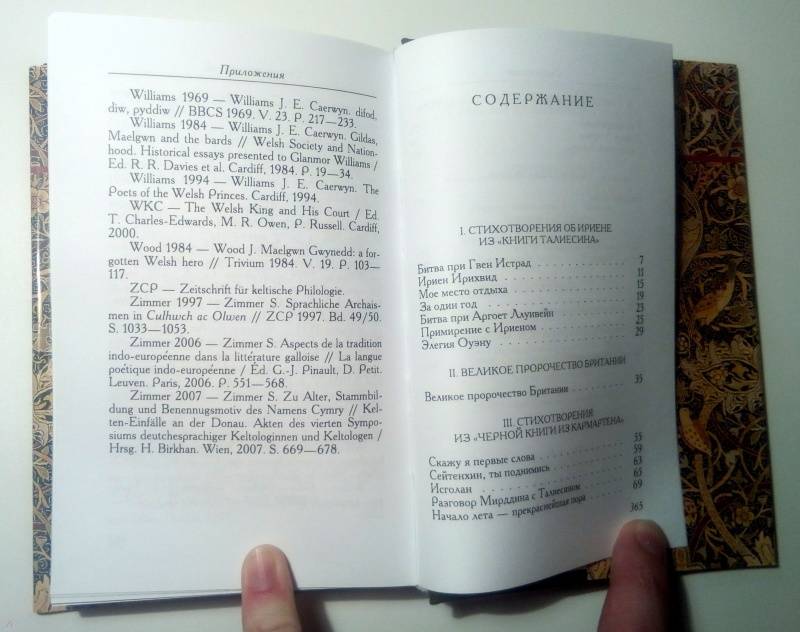 Приложения
Williams 1969 — Williams J. E. Caerwyn. difod,
diw, pyddiw // BBCS 1969. V. 23. P. 217—233.
Williams 1984 — Williams J. E. Caerwyn. Gildas,
Maelgwn and the bards // Welsh Society and Nation-
hood. Historical essays presented to Glanmor Williams /
Ed. R. R. Davies et al. Cardiff, 1984. P. 19—34.
Williams 1994 — Williams J. E. Caerwyn. The
Poets of the Welsh Princes. Cardiff, 1994.
WKC — The Welsh King and His Court / Ed.
T. Charles-Edwards, M. R. Owen, P. Russell. Cardiff,
2000.
Wood 1984 — Wood J. Maelgwn Gwynedd: a for-
gotten Welsh hero // Trivium 1984. V. 19. P. 103—
117.
ZCP — Zeitschrift für keltische Philologie.
Zimmer 1997 — Zimmer S. Sprachliche Archais-
men in Culhwch ac Olwen // ZCP 1997. Bd. 49/50.
S. 1033—1053.
Zimmer 2006 — Zimmer S. Aspects de la tradition
indo-européenne dans la littérature galloise // La langue
poétique indo-européenne / Éd. G.-J. Pinault, D. Petit.
Leuven. Paris, 2006. P. 551—568.
Zimmer 2007 — Zimmer S. Zu Alter, Stammbil-
dung und Benennugsmotiv des Namens Cymry // Kel-
ten-Einfälle an der Donau. Akten des vierten Sympo-
siums deutchesprachiger Keltologinnen und Keltologen /
Hrsg. H. Birkhan. Wien, 2007. S. 669—678.
СОДЕРЖАНИЕ
I. СТИХОТВОРЕНИЯ ОБ ИРИЕНЕ
ИЗ «КНИГИ ТАЛИЕСИНА»
Битва при Гвен Истрад . . . 7
Ириен Ирихвид . . . 11
Мое место отдыха . . . 15
За один год . . . 19
Битва при Аргоет Ллуивейн . . . 23
Примирение с Ириеном . . . 25
Элегия Оуэну . . . 29
II. ВЕЛИКОЕ ПРОРОЧЕСТВО БРИТАНИИ
Великое пророчество Британии . . . 35
III. СТИХОТВОРЕНИЯ
ИЗ «ЧЕРНОЙ КНИГИ ИЗ КАРМАРТЕНА»
Скажу я первые слова . . . 55
Сейтенхин, ты поднимись . . . 59
Исголан . . . 63
Разговор Мирддина с Талиесином . . . 65
Начало лета — прекраснейшая пора . . . 69
365